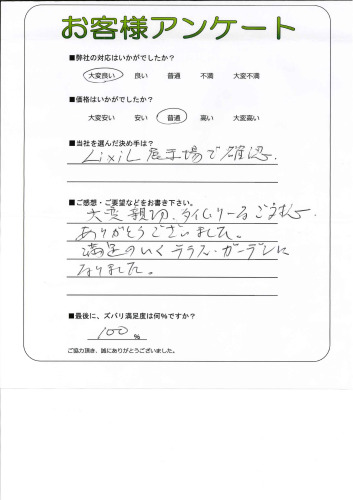 お客様アンケート
■弊社の対応はいかがでしたか?
大変良い 良い 普通 不満 大変不満
■価格はいかがでしたか?
大変安い 安い 普通 高い 大変高い
■当社を選んだ決め手は?
LiXiL 展示場で確認、
■ご感想・ご要望などをお書き下さい。
大変親切、タイムリーな
ありがとうございました。
満足のいくテラス・ガーデンに
なりました。
■最後に、ズバリ満足度は何%ですか?
100 %
ご協力頂き、誠にありがとうございました。